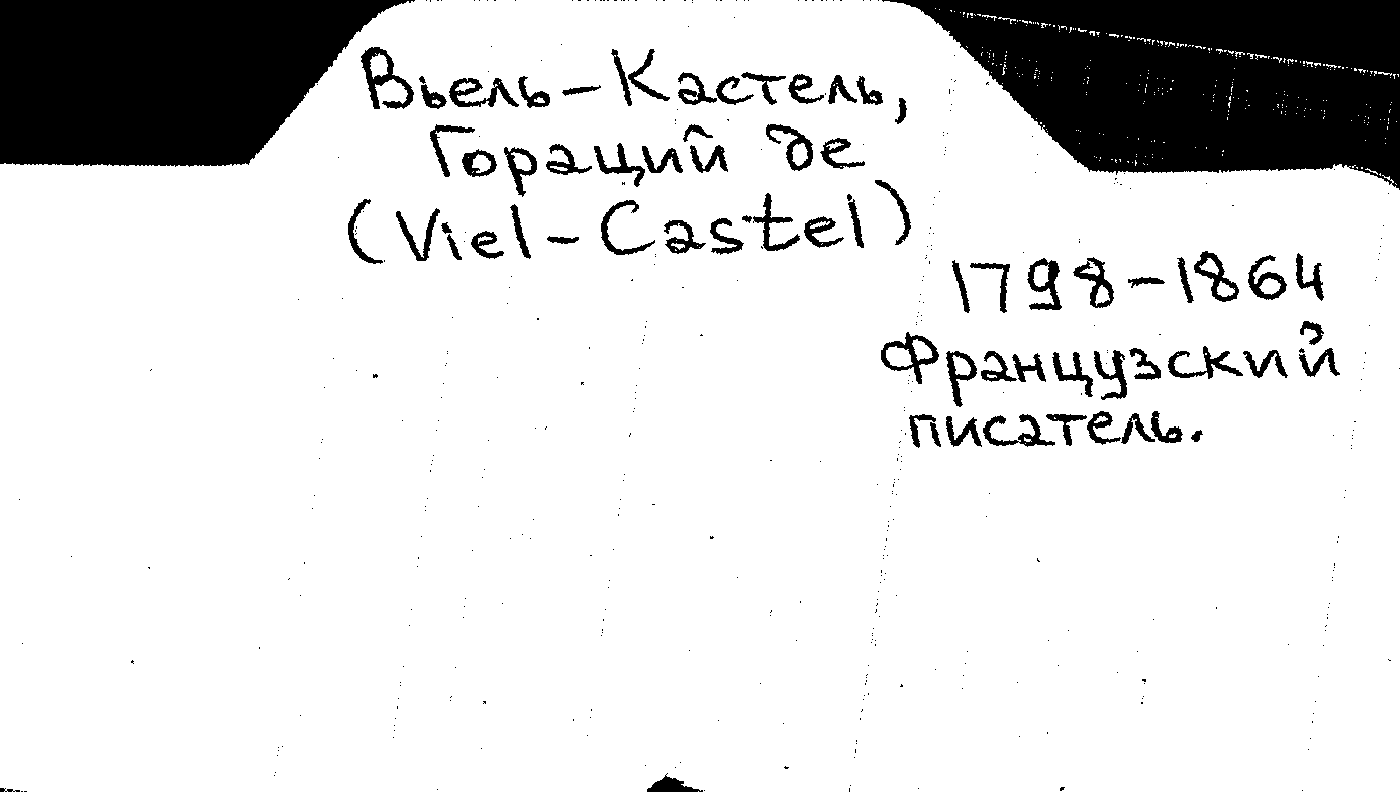 Вьель-Кастель,
Гораций де
(Viel-Castel)
1798-1864
Французский
писатель.